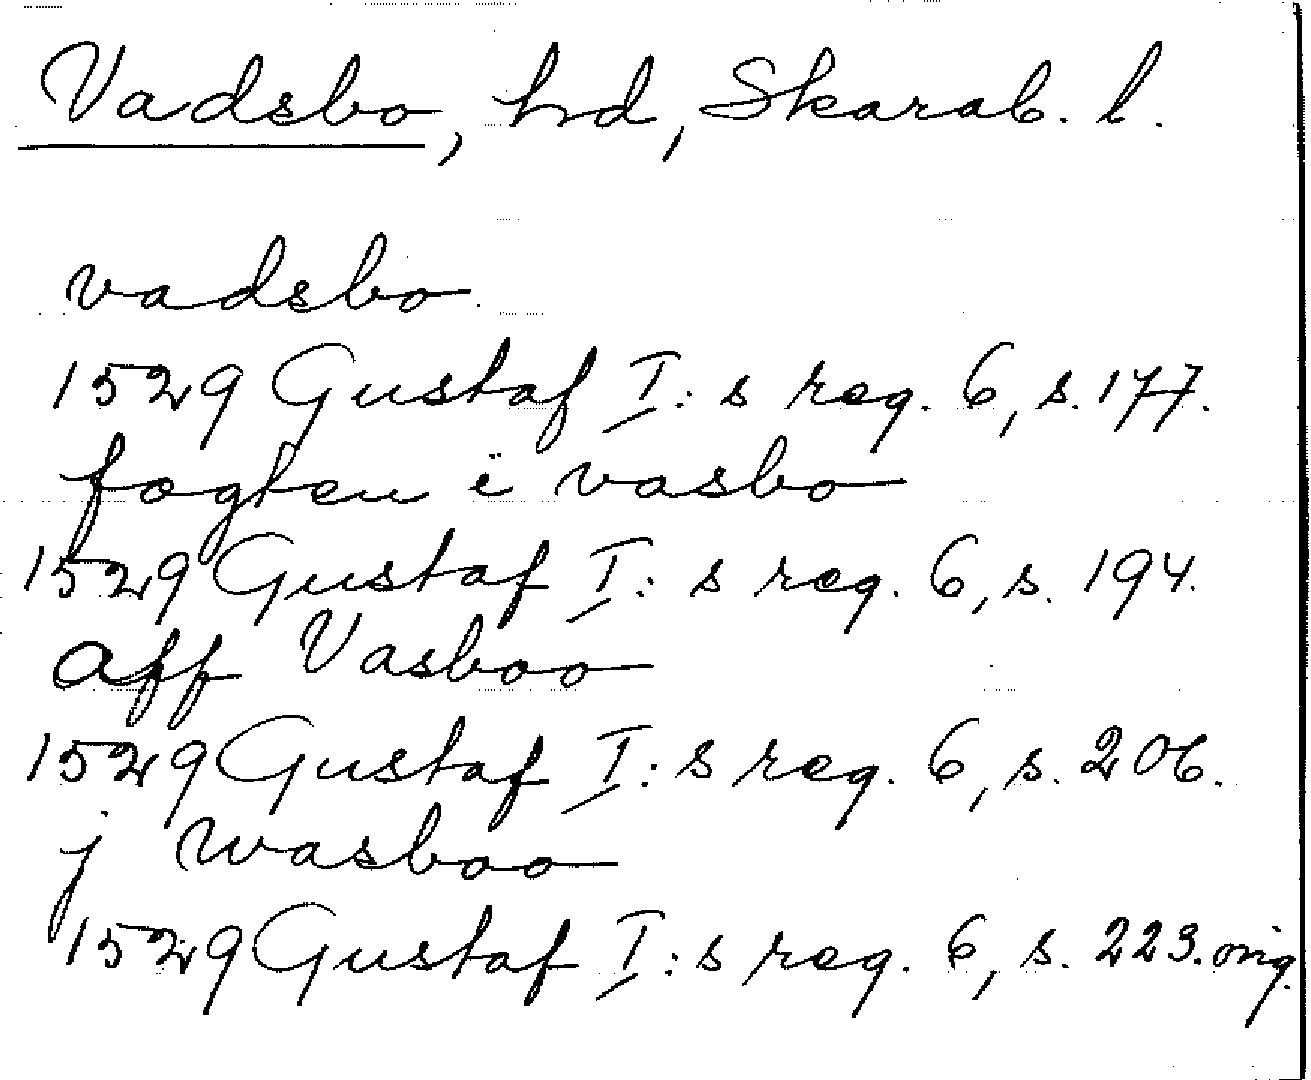 Vadsbo, hd, Skarab. l.
vadsbo
1529 Gustaf I:s reg. 6, s. 177.
fogten i vasbo
1529 Gustaf I:s reg. 6, s. 194.
aff Vasboo
1529 Gustaf I:s reg. 6, s. 206.
j wasboo
1529 Gustaf I:s reg. 6, s. 223. orig.